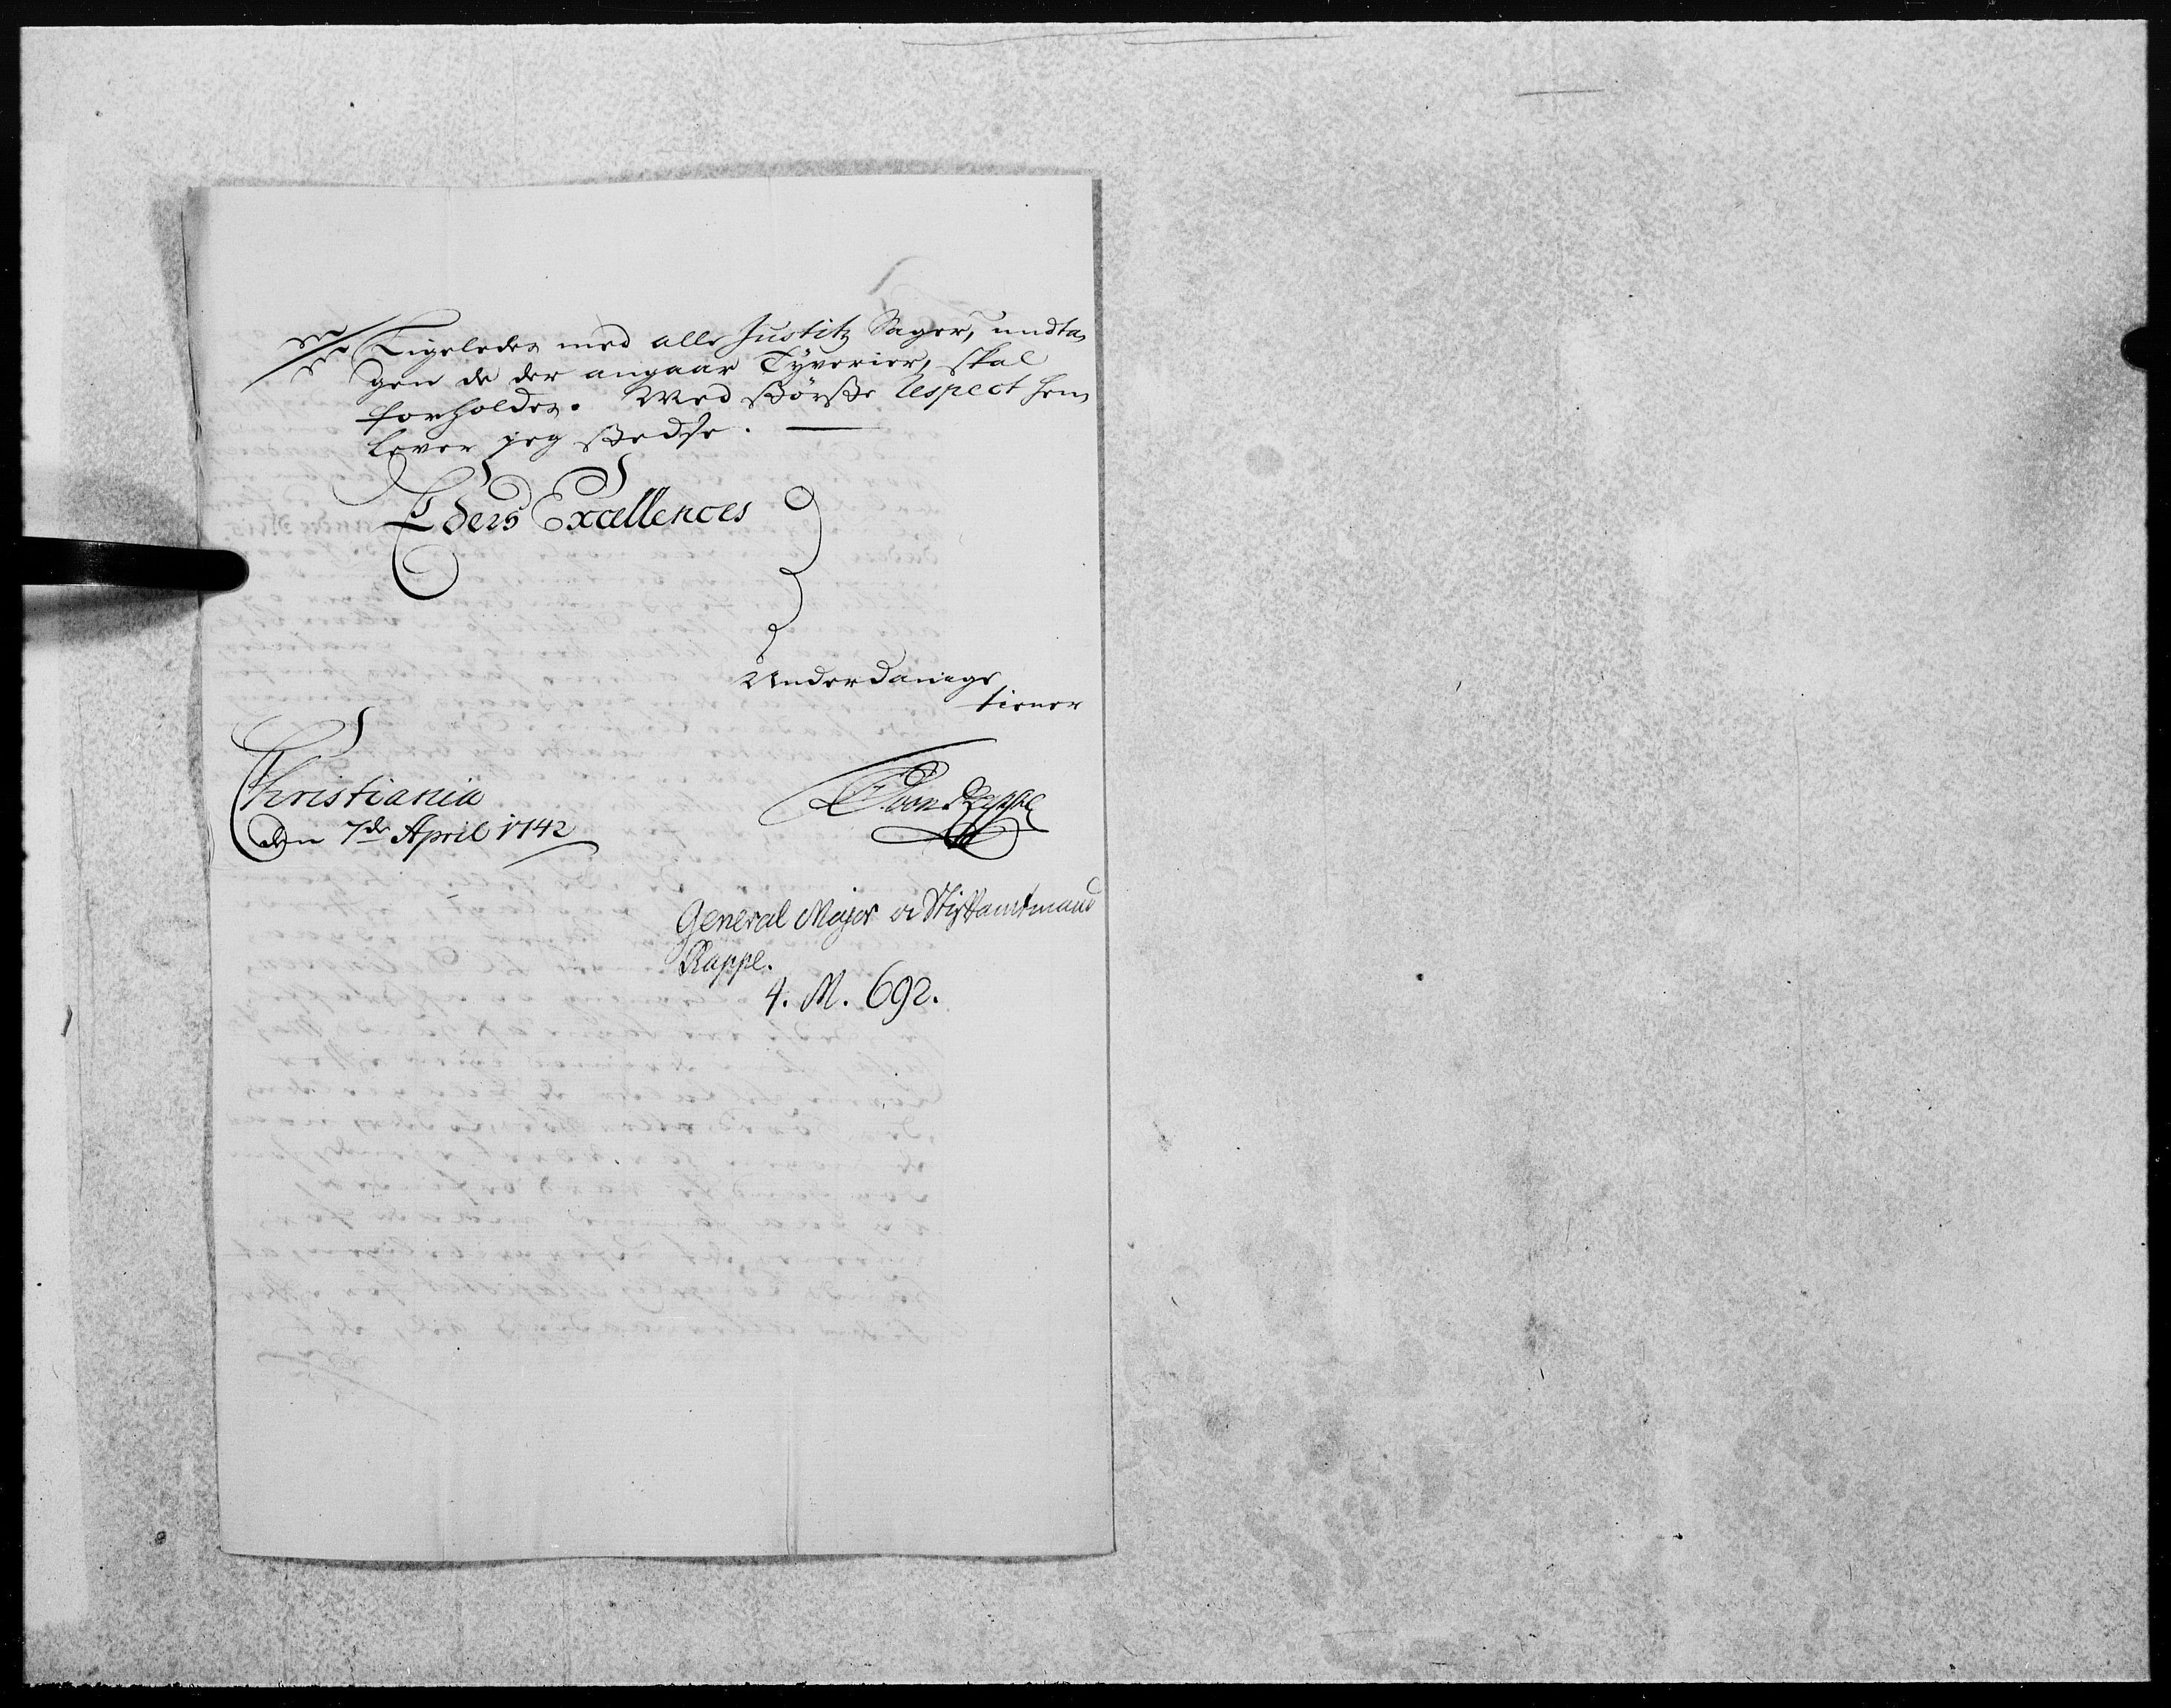 Ligeledes med alle Justitz Sager, undta,
gen de der angaar Tyverier, skal
forholdes. Med störste respect hen,
lever jeg stedse.
Eders Excellences
Underdanige
tiener
Christiania
den 7de April 1742
C. von Rappe
General Major og Stiftamtmand
Rappe.
4. M. 692.